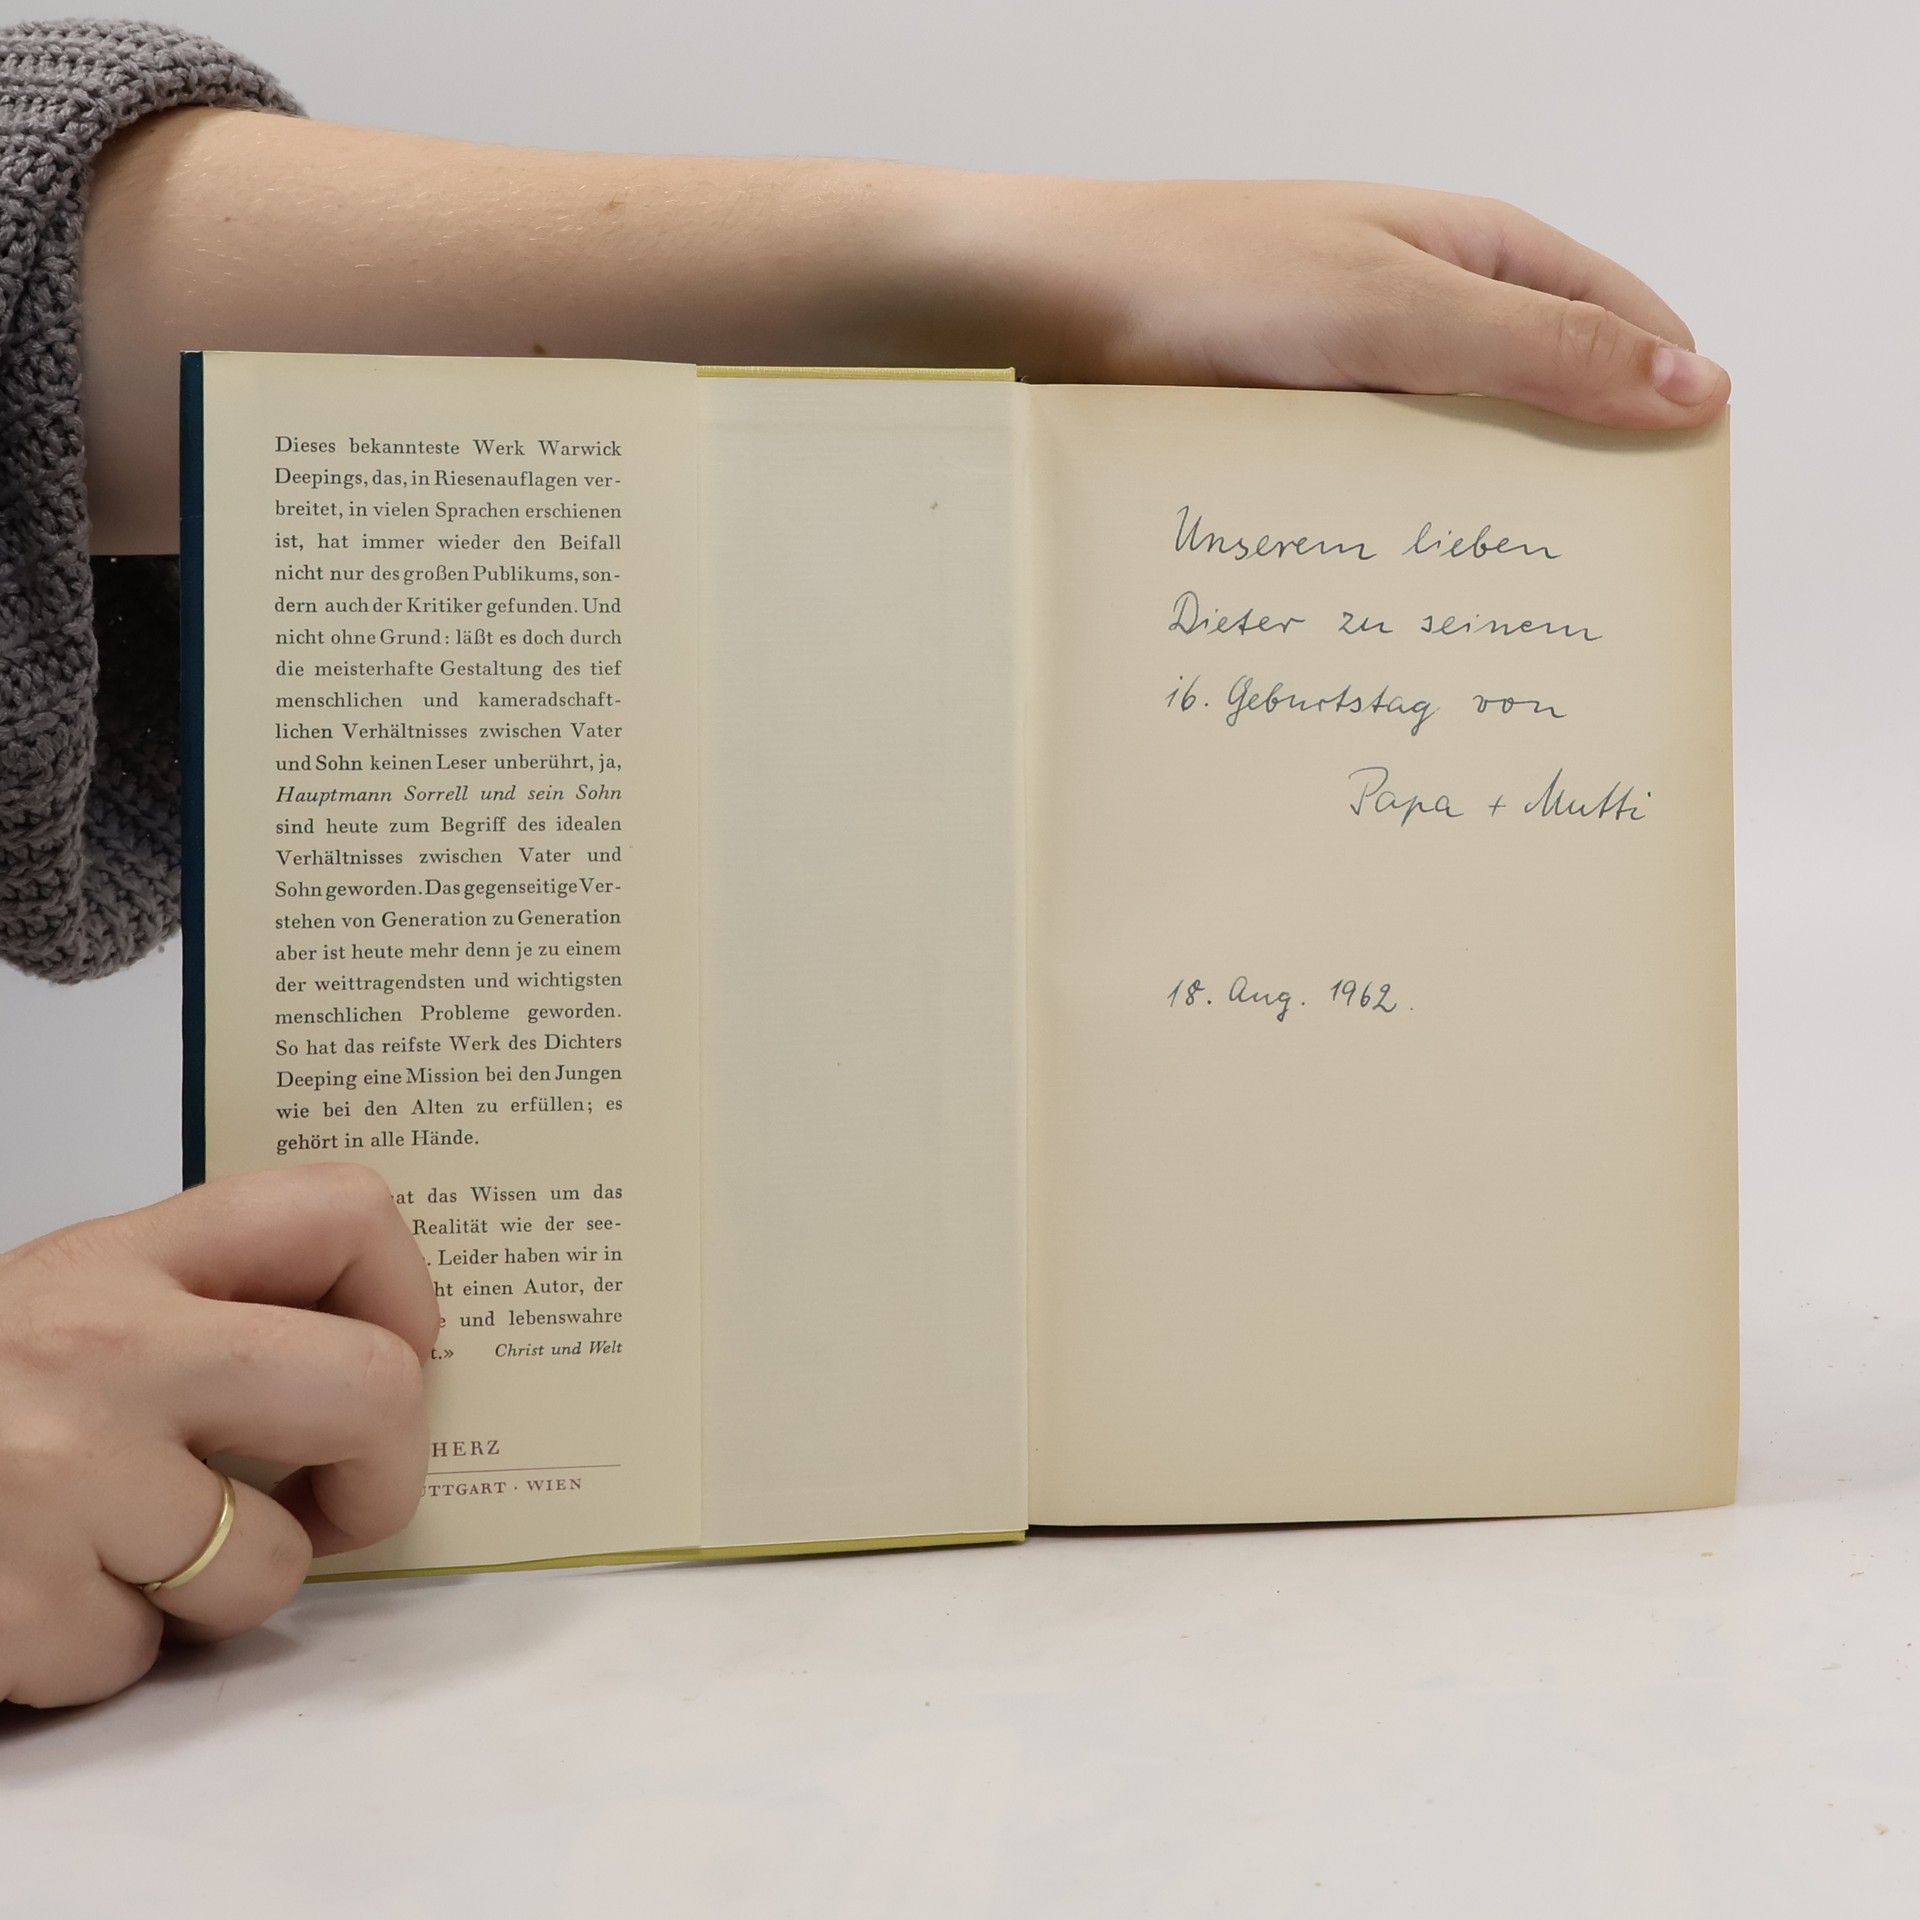 Dieses bekannteste Werk Warwick
Deepings, das, in Riesenauflagen ver-
breitet, in vielen Sprachen erschienen
ist, hat immer wieder den Beifall
nicht nur des großen Publikums, son-
dern auch der Kritiker gefunden. Und
nicht ohne Grund: läßt es doch durch
die meisterhafte Gestaltung des tief
menschlichen und kameradschaft-
lichen Verhältnisses zwischen Vater
und Sohn keinen Leser unberührt, ja,
Hauptmann Sorrell und sein Sohn
sind heute zum Begriff des idealen
Verhältnisses zwischen Vater und
Sohn geworden. Das gegenseitige Ver-
stehen von Generation zu Generation
aber ist heute mehr denn je zu einem
der weittragendsten und wichtigsten
menschlichen Probleme geworden.
So hat das reifste Werk des Dichters
Deeping eine Mission bei den Jungen
wie bei den Alten zu erfüllen; es
gehört in alle Hände.
das Wissen um das
Realität wie der see-
Leider haben wir in
einen Autor, der
und lebenswahre
t.» Christ und Welt
HERZ
UTTGART · WIEN
Unserem lieben
Dieter zu seinem
16. Geburtstag von
Papa + Mutti
18. Aug. 1962.